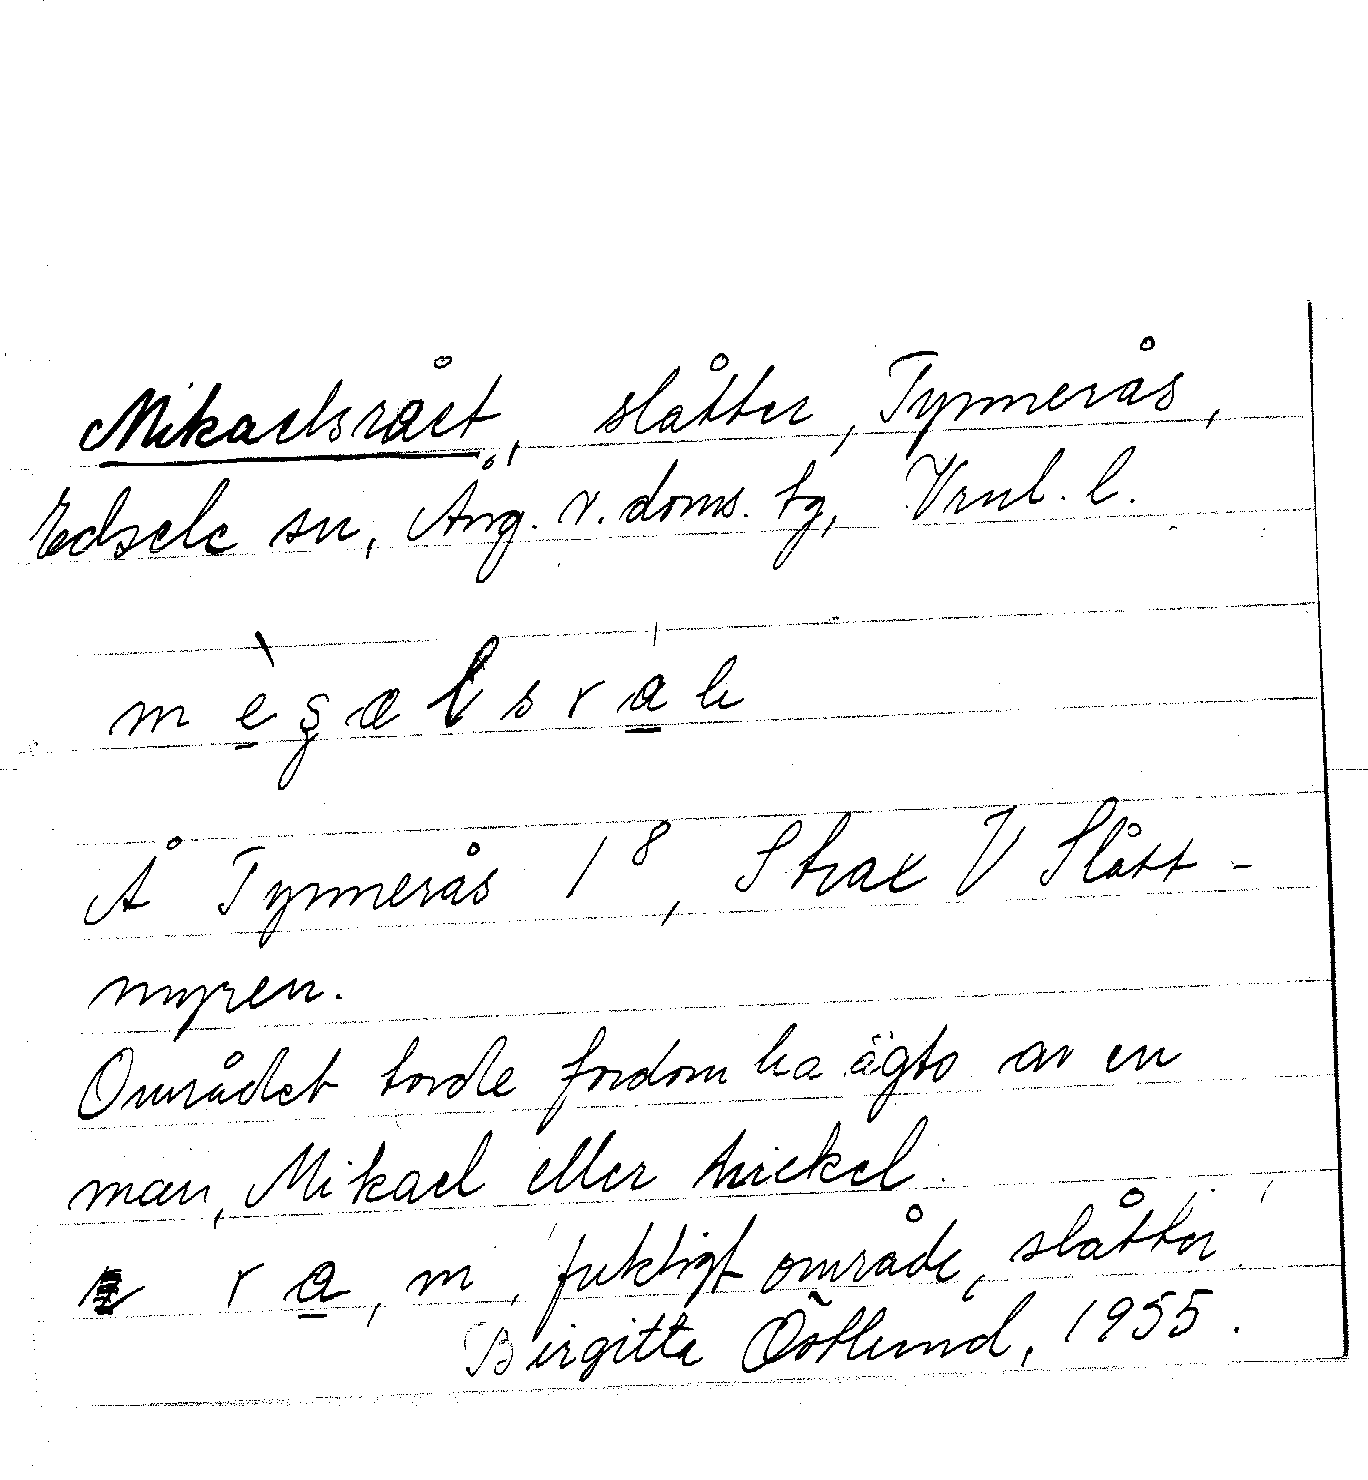 Mikaelsrået, slåtter, Tynnerås,
Edsele sn, Ång. v. doms. tg, Vrnl. l.
À Tynnerås 1⁸, Strax V Slått-
myren.
Området torde fordom ha ägts av en
man, Mikael eller Mickel.
ra, m, fuktigt område, slåtter.
Birgitta Östlund, 1955.